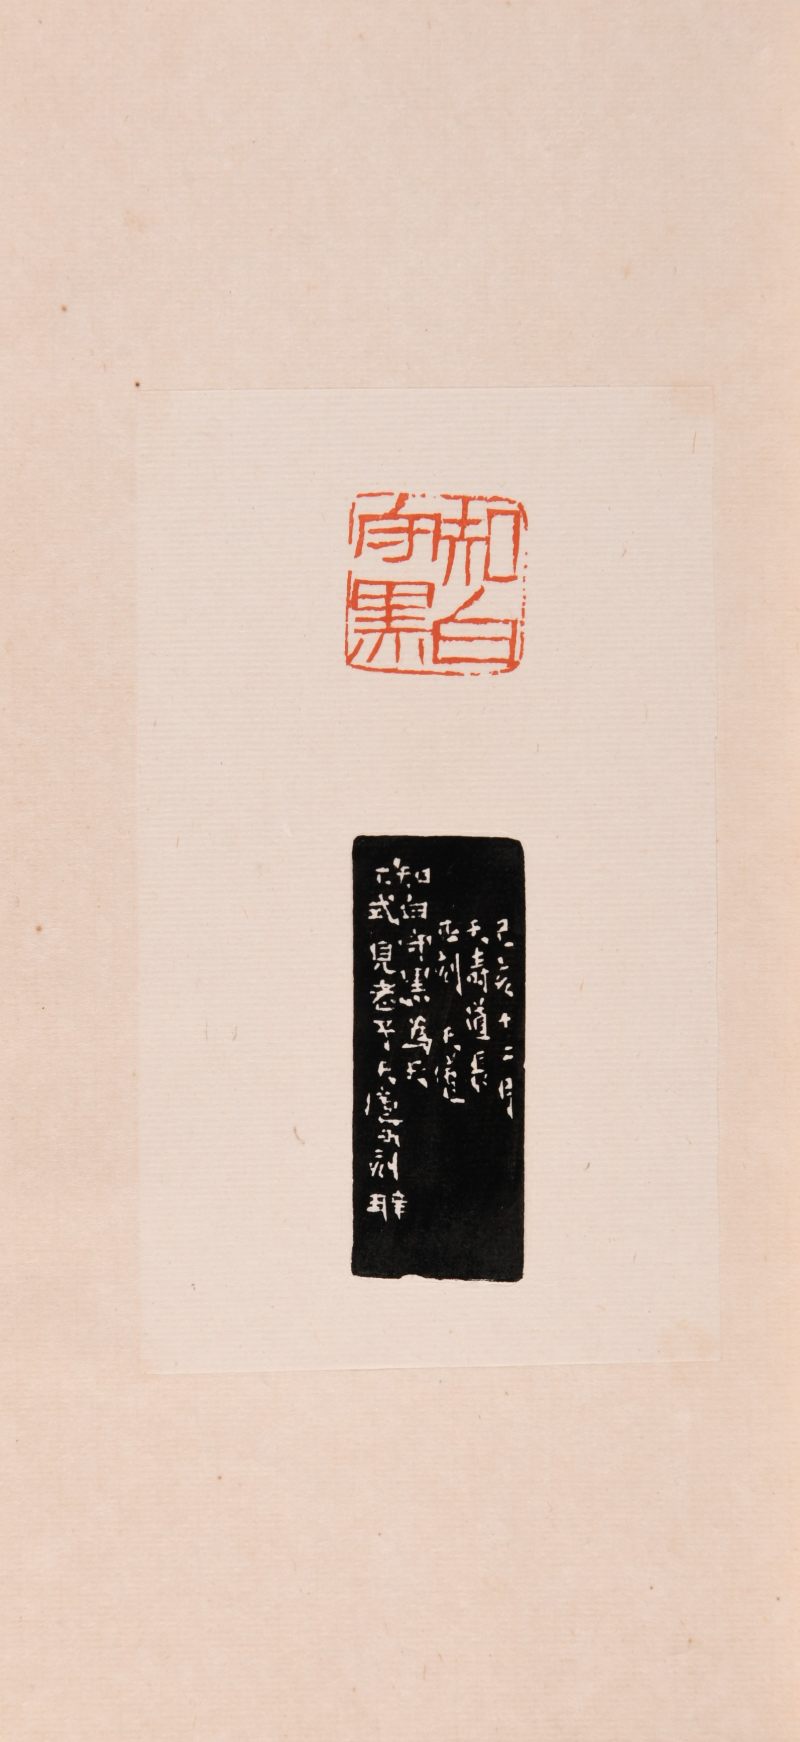 知白
守黑
己亥十二月
天壽道長
正刻
知白守黑為天
下式見老子